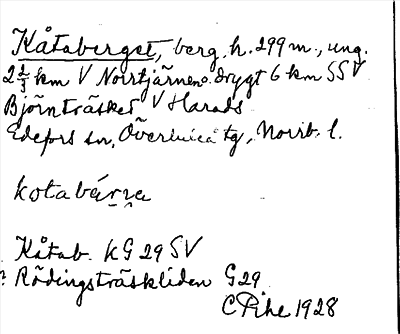 Kåtaberget, berg, h. 299 m., ung.
2 2/3 km V Norrtjärnen o. drygt 6 km SSV
Björnträsket V Harads
Edefors sn, Överluleå tg, Norrb. l.
kotabárra
Kåtab. kG 29 SV
? Rödingsträskliden G29
C Pihl 1928